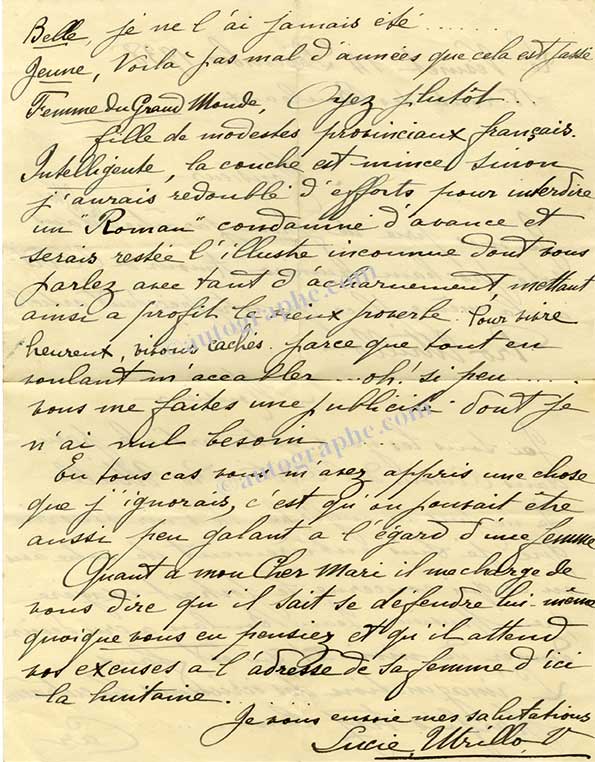 Belle, je ne l'ai jamais été........
Jeune, Voilà pas mal d'années que cela est passé
Femme du Grand Monde, Oyez plutôt...
fille de modestes provinciaux français.
Intelligente, la couche est mince sinon
j'aurais redoublé d'efforts pour interdire
un "Roman" condamné d'avance et
serais restée l'illustre inconnue dont vous
parlez avec tant d'acharnement, mettant
ainsi a profit le vieux proverbe. Pour vivre
heureux, vivons cachés. parce que tout en
voulant m'accabler... oh! si peu.....
vous me faites une publicité dont je
n'ai nul besoin.
En tous cas vous m'avez appris une chose
que j'ignorais, c'est qu'on pouvait être
aussi peu galant a l'égard d'une femme
Quant a mon Cher Mari il me charge de
vous dire qu'il sait se défendre lui-même
quoique vous en pensiez et qu'il attend
vos excuses a l'adresse de sa femme d'ici
la huitaine.
Je vous envoie mes salutations
Lucie, Utrillo, V
©autographe.com
©autographe.com